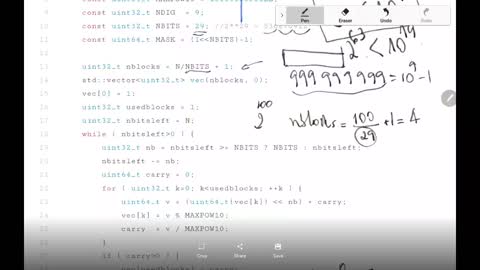 const uint32_t NDIG = 9;
const uint32_t NBITS = 29; //2**29 =
const uint64_t MASK = (1<<NBITS)-1;
Pen
Eraser
Undo
Redo
2^63 < 10^19
999 999 999 = 10^9 - 1
13
uint32_t nblocks = N/NBITS + 1;
14
std::vector<uint32_t> vec(nblocks, 0);
15
vec[0] = 1;
16
uint32_t usedblocks = 1;
2^100
nblocks = 100/29 + 1 = 4
17
uint32_t nbitsleft = N;
18
while ( nbitsleft>0 ) {
19
uint32_t nb = nbitsleft >= NBITS ? NBITS : nbitsleft;
20
nbitsleft -= nb;
21
uint64_t carry = 0;
22
for ( uint32_t k=0; k<usedblocks; ++k ) {
23
uint64_t v = (uint64_t(vec[k]) << nb) + carry;
24
vec[k] = v % MAXPOW10;
25
carry = v / MAXPOW10;
26
}
if ( carry>0 ) {
Crop
Share
Save